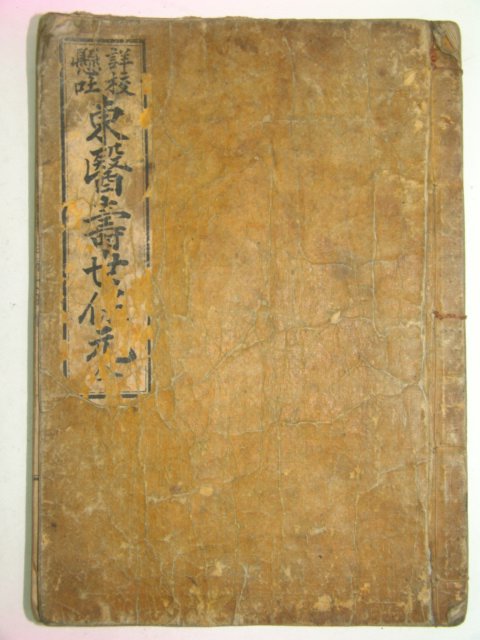 詳校
懸吐
東醫壽世保元